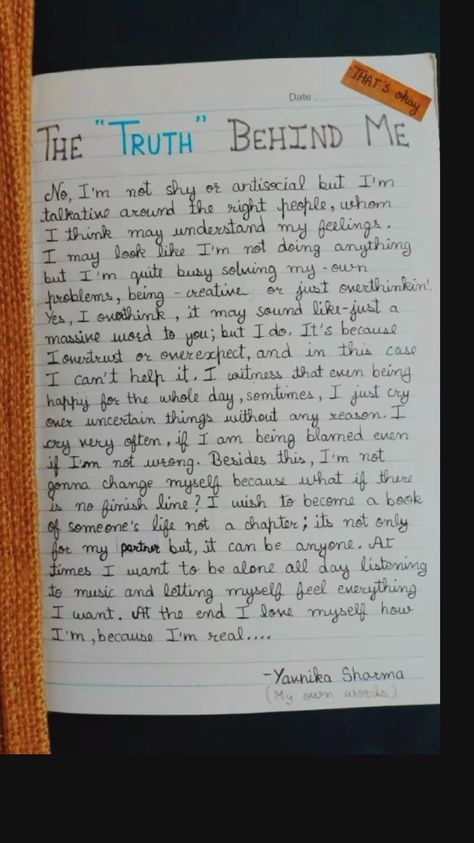 Date :
THAT's okay
THE "TRUTH" BEHIND ME
No, I'm not shy or antisocial but I'm
talkative around the right people, whom
I think may understand my feelings.
I may look like I'm not doing anything
but I'm quite busy solving my-own
problems, being - creative or just overthinkin'.
Yes, I overthink, it may sound like-just a
massive word to you; but I do. It's because
I overtrust or overexpect, and in this case
I can't help it. I witness that even being
happy for the whole day, somtimes, I just cry
over uncertain things without any reason. I
cry very often, if I am being blamed even
if I'm not wrong. Besides this, I'm not
gonna change myself because what if there
is no finish line? I wish to become a book
of someone's life not a chapter; its not only
for my partner but, it can be anyone. At
times I want to be alone all day listening
to music and letting myself feel everything
I want. At the end I love myself how
I'm, because I'm real....
-Yaunika Sharma
(My own words)